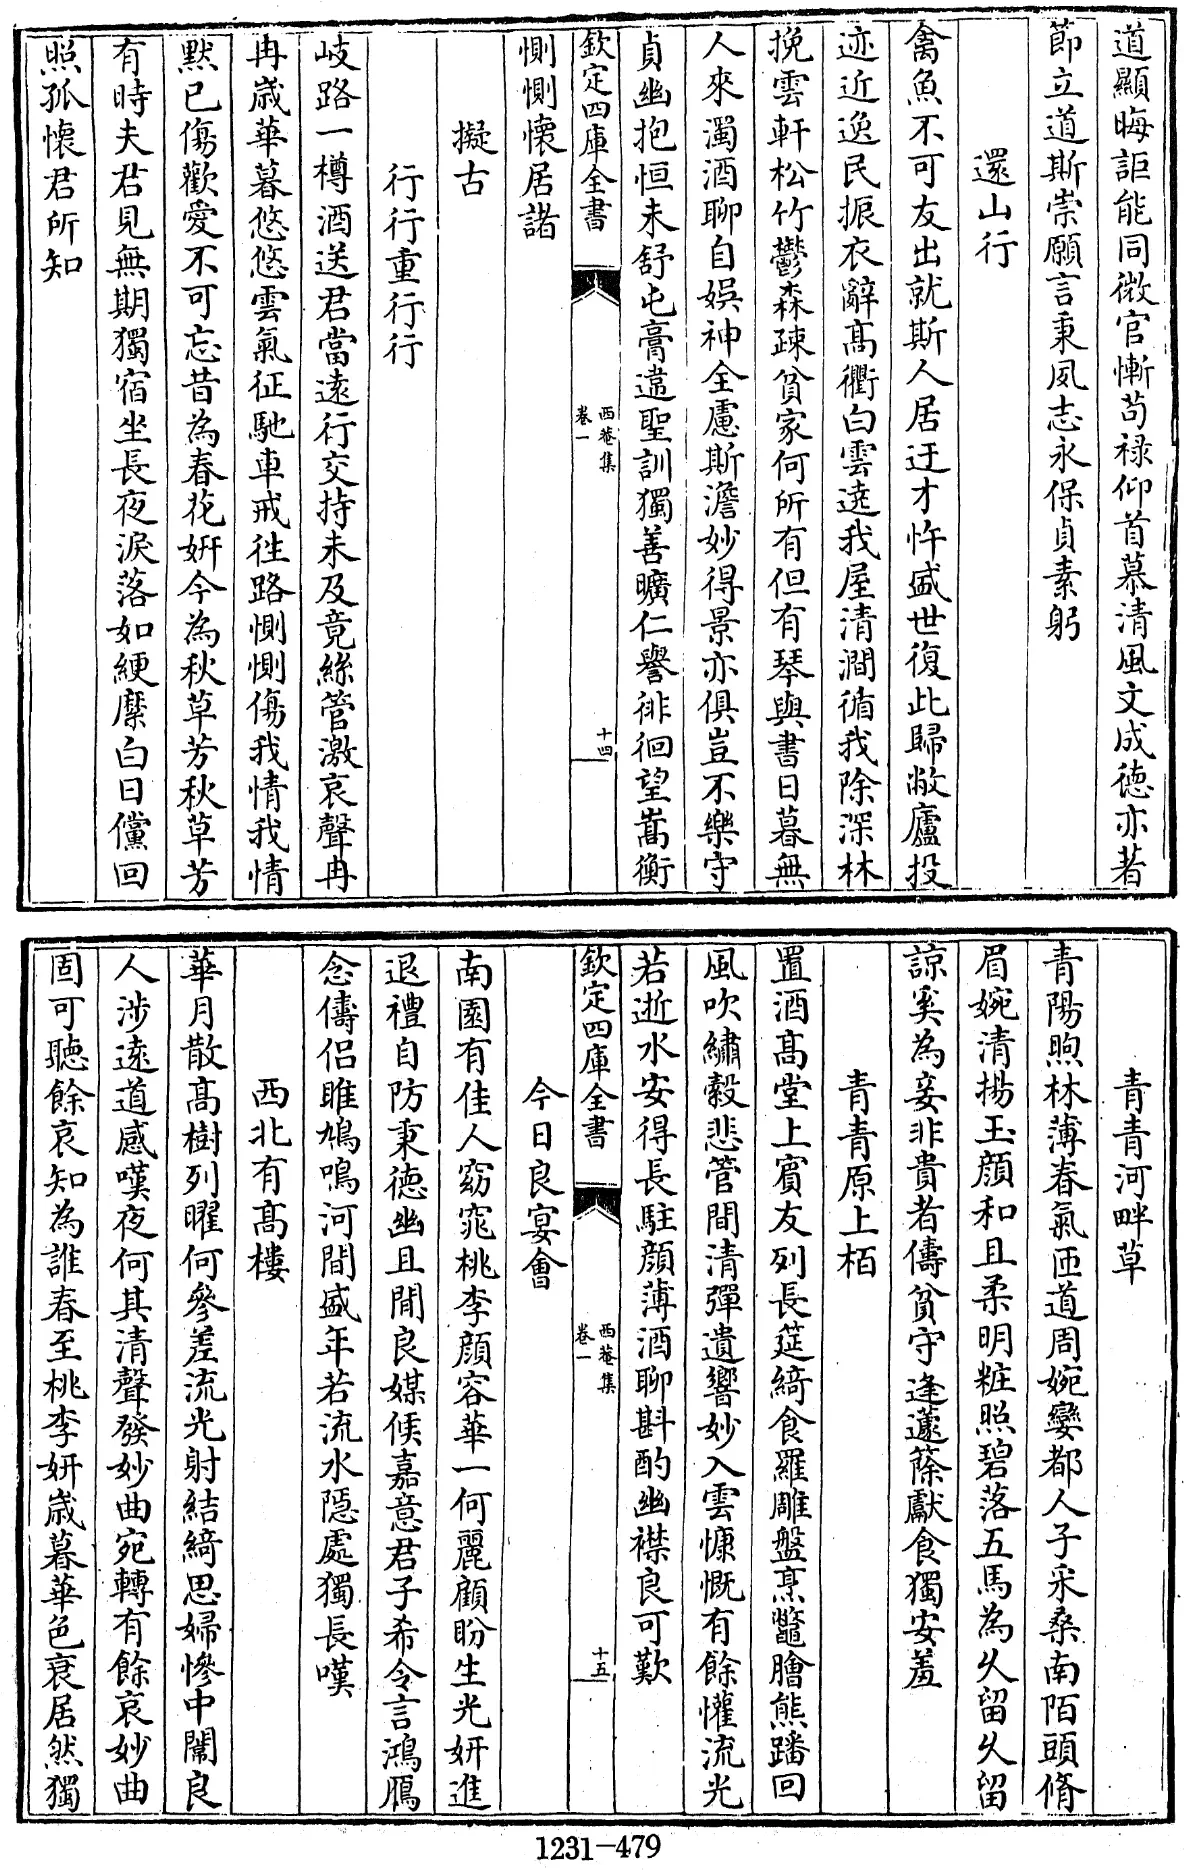 道顯晦詎能同微官慚茍祿仰首慕清風文成德亦著
節立道斯崇願言秉夙志永保貞素躬
還山行
禽魚不可友出就斯人居迂才忤盛世復此歸敝廬投
迹近逸民振衣辭髙衢白雲遶我屋清澗循我除深林
挽雲軒松竹鬱森疎貧家何所有但有琴與書日暮無
人來濁酒聊自娛神全慮斯澹妙得景亦俱豈不樂守
貞幽抱恒未舒屯膏違聖訓獨善曠仁譽徘徊望嵩衡
欽定四庫全書
西菴集
卷一
十四
惻惻懷居諸
擬古
行行重行行
岐路一樽酒送君當遠行交持未及竟絲管激哀聲冉
冉歳華暮悠悠雲氣征馳車戒徃路惻惻傷我情我情
黙已傷歡愛不可忘昔為春花妍今為秋草芳秋草芳
有時夫君見無期獨宿坐長夜淚落如綆縻白日儻回
照孤懷君所知
青青河畔草
青陽煦林薄春氣匝道周婉孌都人子采桑南陌頭脩
眉婉清揚玉顔和且柔明粧照碧落五馬為乆留乆留
諒奚為妾非貴者儔貧守逢蘧篨獻食獨安羞
青青原上栢
置酒髙堂上賓友列長筵綺食羅雕盤烹鼈膾熊蹯回
風吹繡縠悲管間清彈遺響妙入雲慷慨有餘懽流光
若逝水安得長駐顔薄酒聊斟酌幽襟良可歎
欽定四庫全書
西菴集
卷一
十五
今日良宴會
南園有佳人窈窕桃李顔容華一何麗顧盼生光妍進
退禮自防秉德幽且閒良媒候嘉意君子希令言鴻鴈
念儔侶雎鳩鳴河間盛年若流水隠處獨長嘆
西北有髙樓
華月散髙樹列曜何參差流光射結綺思婦慘中閨良
人涉遠道感嘆夜何其清聲發妙曲宛轉有餘哀妙曲
固可聽餘哀知為誰春至桃李妍歳暮華色衰居然獨
1231-479